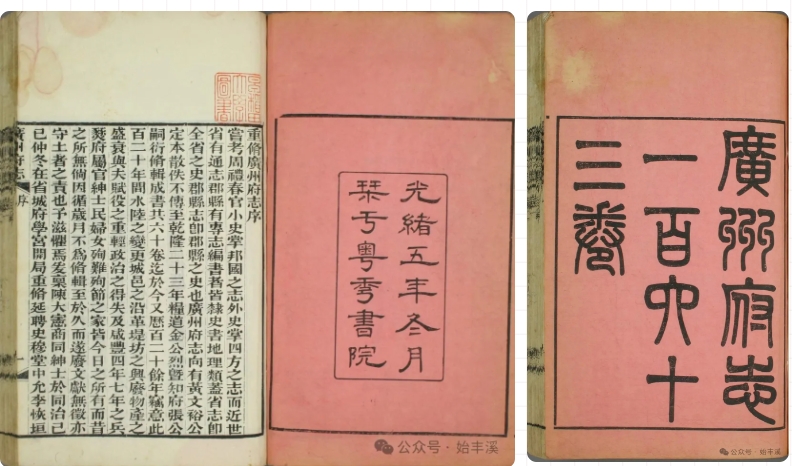 廣州府志
一百六十
三卷
光緒五年冬月
栞于粵秀書院
重脩廣州府志序
嘗考周禮春官小史掌邦國之志外史掌四方之志而近世
省有通志郡縣有專志編書者皆隸史書地理類蓋省志卽
全省之史郡縣志卽郡縣之史也廣州府志向有黃文裕公
定本散佚不傳至乾隆二十三年糧道金公烈曁知府張公
嗣衍脩輯成書共六十卷迄於今又厯百二十餘年竊意此
百二十年間水陸之變更城邑之沿革堤坊之興廢物產之
盛衰與夫賦役之重輕政治之得失及咸豐四年七年之兵
燹府屬官紳士民婦女殉難殉節之家皆今日之所有而昔
之所無倘因循歲月不爲脩輯至於久而遂廢文獻無徵亦
守土者之責也予滋懼焉爰稟陳大憲商同紳士於同治己
巳仲冬在省城府學宮開局重脩延聘史穆堂中允李恢垣
廣州府志 序 一
公众号·始丰溪
公众号·始丰溪